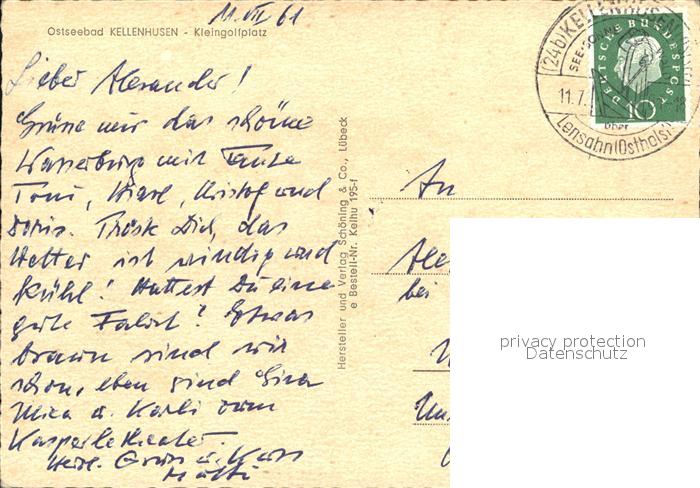 11. VII 61
Ostseebad KELLENHUSEN - Kleingolfplatz
Lieber Alexander!
Grüsse mir das schöne
Wasserburg mit Tante
Toni, Kristof und
Doris. Tröste Dich, das
Wetter ist windig und
kühl! Hattest Du eine
gute Fahrt? Etwas
braun sind wir
schon, eben sind
Mica u. Karli zum
Kasperletheater.
Herzl. Gruss u. Kuss
Mutti
Hersteller und Verlag Schöning & Co., Lübeck
e Bestell-Nr. Kelhu 195-f
(24b) KELLENHUSEN
SEE-
11.7.
18
über
Lensahn (Ostholst)
DEUTSCHE BUNDESPOST
10
An
Ale
bei
privacy protection
Datenschutz